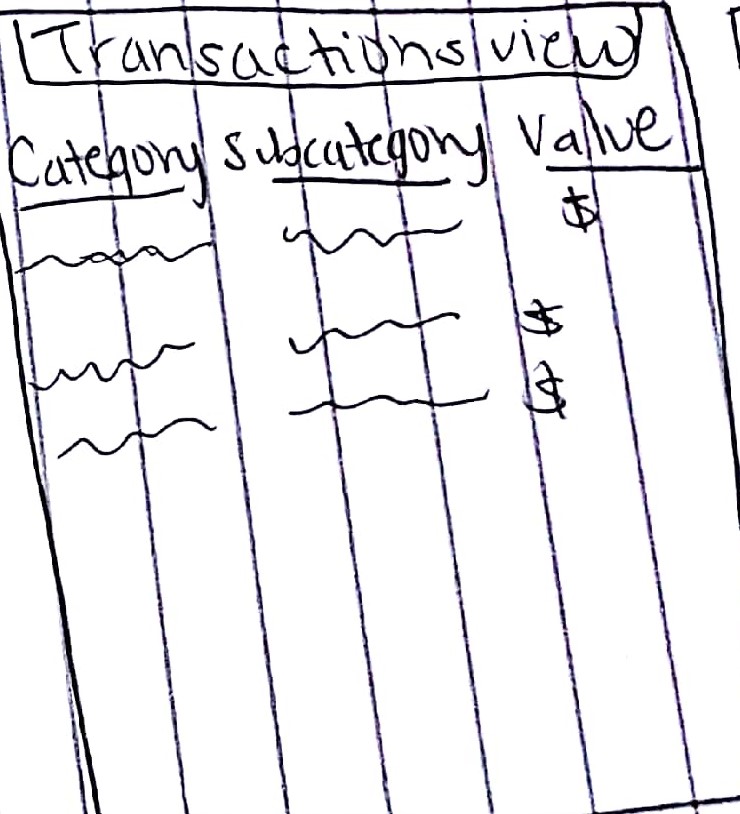 Transactions view
Category Subcategory Value
$
$
$